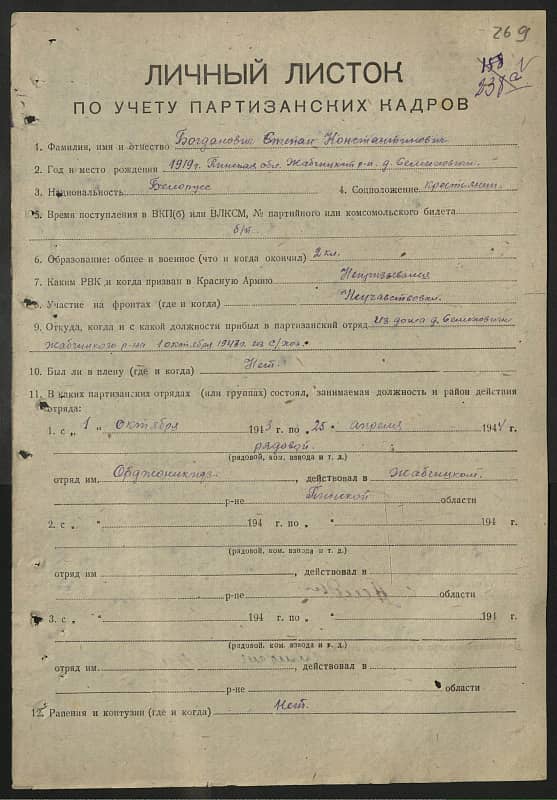 269
158
ЛИЧНЫЙ ЛИСТОК
ПО УЧЕТУ ПАРТИЗАНСКИХ КАДРОВ
1. Фамилия, имя и отчество Богданович Степан Константинович
2. Год и место рождения 1919г. Пинская обл. Жабчицкий р-н. д. Семеховичи.
3. Национальность: Белорус 4. Соцположение крестьянин.
5. Время поступления в ВКП(б) или ВЛКСМ, № партийного или комсомольского билета
б/п.
6. Образование: общее и военное (что и когда окончил) 2 кл.
7. Каким РВК и когда призван в Красную Армию Непризывался
8. Участие на фронтах (где и когда) Неучавствовал.
9. Откуда, когда и с какой должности прибыл в партизанский отряд из дома д. Семеховичи
Жабчицкого р-на 1 октября 1943г. из с/хоз.
10. Был ли в плену (где и когда) Нет.
11. В каких партизанских отрядах (или группах) состоял, занимаемая должность и район действия
отряда:
1. с „ 1 " октября 1943 г. по „ 25 " апреля 1944 г.
рядовой.
(рядовой, ком. взвода и т. д.)
отряд им. Орджоникидзе , действовал в Жабчицком.
р-не Пинской области
2. с „ " 194 г. по „ " 194 г.
(рядовой, ком. взвода и т. д.)
отряд им , действовал в
р-не области
3. с „ " 194 г. по „ " 194 г.
(рядовой, ком. взвода и т. д.)
отряд им. , действовал в
р-не области
12. Ранения и контузии (где и когда) Нет.